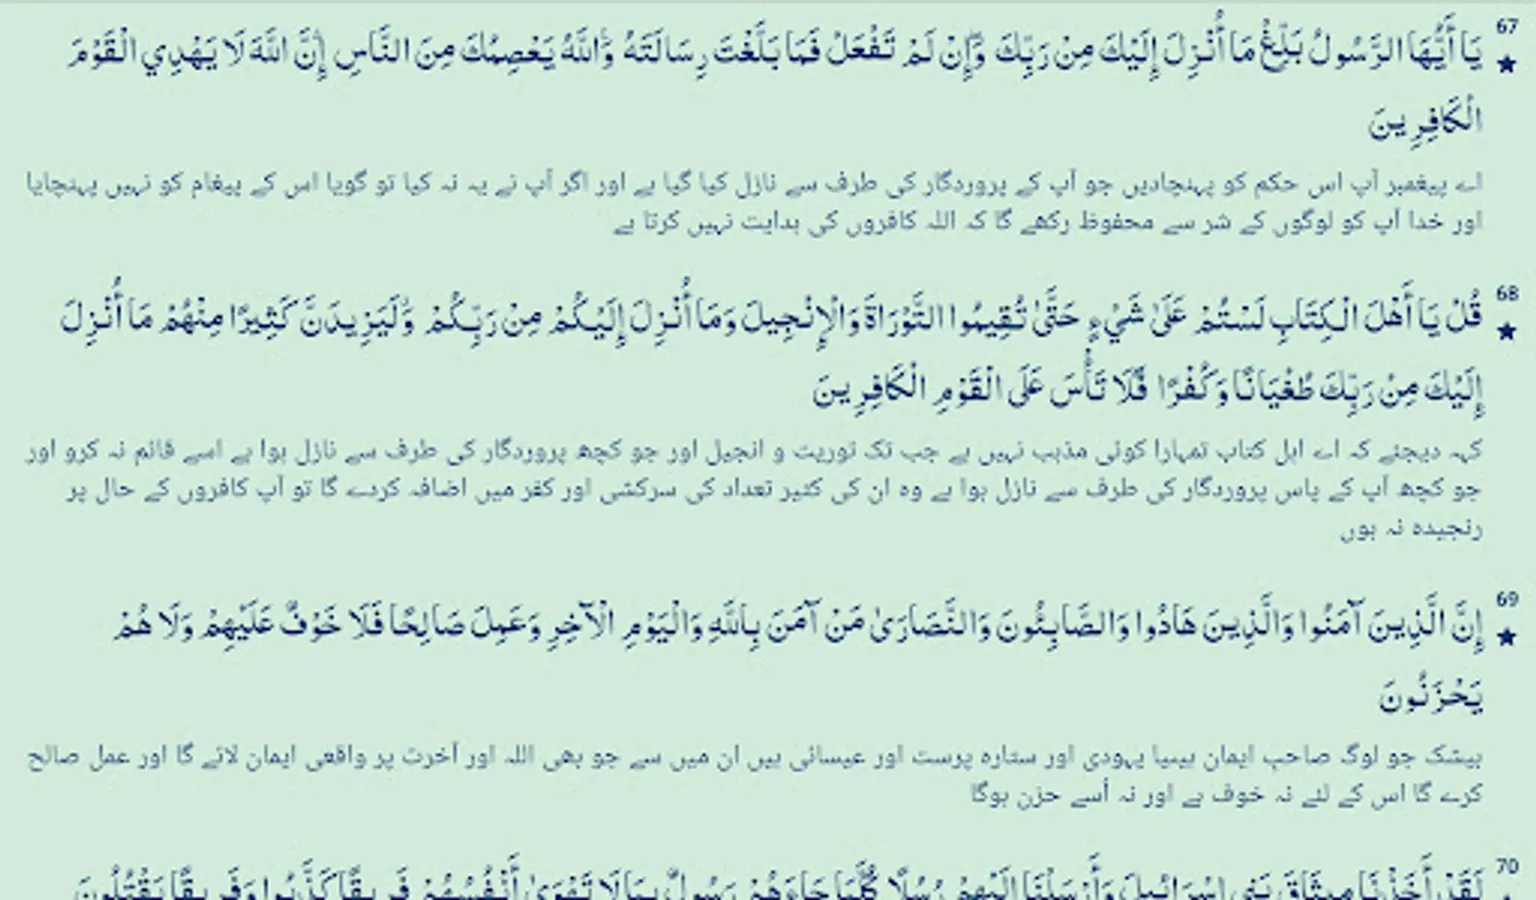 67
يَا أَيُّهَا الرَّسُولُ بَلِّغْ مَا أُنْزِلَ إِلَيْكَ مِنْ رَبِّكَ ۖ وَإِنْ لَمْ تَفْعَلْ فَمَا بَلَّغْتَ رِسَالَتَهُ ۚ وَاللَّهُ يَعْصِمُكَ مِنَ النَّاسِ ۗ إِنَّ اللَّهَ لَا يَهْدِي الْقَوْمَ
الْكَافِرِينَ
اے پیغمبر آپ اس حکم کو پہنچادیں جو آپ کے پروردگار کی طرف سے نازل کیا گیا ہے اور اگر آپ نے یہ نہ کیا تو گویا اس کے پیغام کو نہیں پہنچایا
اور خدا آپ کو لوگوں کے شر سے محفوظ رکھے گا کہ اللہ کافروں کی ہدایت نہیں کرتا ہے
68
قُلْ يَا أَهْلَ الْكِتَابِ لَسْتُمْ عَلَىٰ شَيْءٍ حَتَّىٰ تُقِيمُوا التَّوْرَاةَ وَالْإِنْجِيلَ وَمَا أُنْزِلَ إِلَيْكُمْ مِنْ رَبِّكُمْ ۗ وَلَيَزِيدَنَّ كَثِيرًا مِنْهُمْ مَا أُنْزِلَ
إِلَيْكَ مِنْ رَبِّكَ طُغْيَانًا وَكُفْرًا ۖ فَلَا تَأْسَ عَلَى الْقَوْمِ الْكَافِرِينَ
کہہ دیجئے کہ اے اہل کتاب تمہارا کوئی مذہب نہیں ہے جب تک توریت و انجیل اور جو کچھ پروردگار کی طرف سے نازل ہوا ہے اسے قائم نہ کرو اور
جو کچھ آپ کے پاس پروردگار کی طرف سے نازل ہوا ہے وہ ان کی کثیر تعداد کی سرکشی اور کفر میں اضافہ کردے گا تو آپ کافروں کے حال پر
رنجیدہ نہ ہوں
69
إِنَّ الَّذِينَ آمَنُوا وَالَّذِينَ هَادُوا وَالصَّابِئُونَ وَالنَّصَارَىٰ مَنْ آمَنَ بِاللَّهِ وَالْيَوْمِ الْآخِرِ وَعَمِلَ صَالِحًا فَلَا خَوْفٌ عَلَيْهِمْ وَلَا هُمْ
يَحْزَنُونَ
بیشک جو لوگ صاحبِ ایمان ہیںیا یہودی اور ستارہ پرست اور عیسائی ہیں ان میں سے جو بھی اللہ اور آخرت پر واقعی ایمان لائے گا اور عمل صالح
کرے گا اس کے لئے نہ خوف ہے اور نہ اُسے حزن ہوگا
70
لَقَدْ أَخَذْنَا مِيثَاقَ بَنِي إِسْرَائِيلَ وَأَرْسَلْنَا إِلَيْهِمْ رُسُلًا ۖ كُلَّمَا جَاءَهُمْ رَسُولٌ بِمَا لَا تَهْوَىٰ أَنْفُسُهُمْ فَرِيقًا كَذَّبُوا وَفَرِيقًا يَقْتُلُونَ